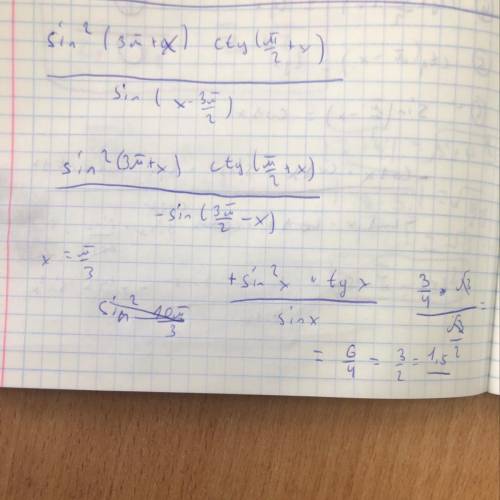 sin² (3π + x) ctg (π/2 + x)
sin (x - 3π/2)
sin² (3π + x) ctg (π/2 + x)
-sin (3π/2 - x)
x = π/3
+sin² x · tg x
sin x
3/4 · √3
√3/2
=
sin² 10π/3
= 6/4 = 3/2 = 1,5